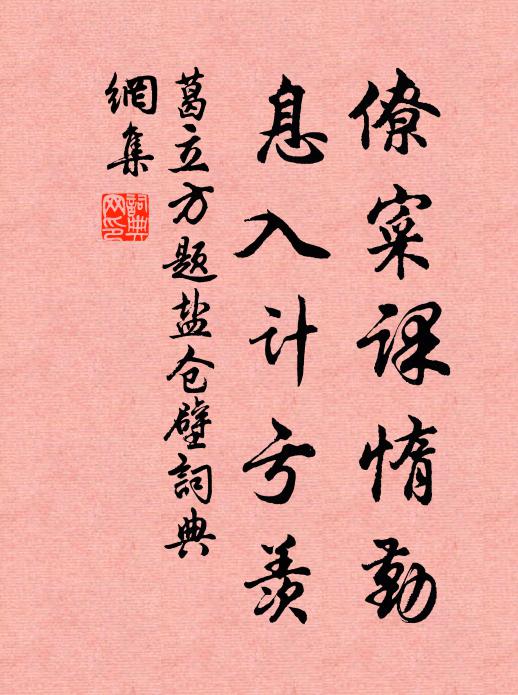 僚寀课惰勤
息入计亏羡
葛立方题盐仓壁詞典
網集
詞典网印